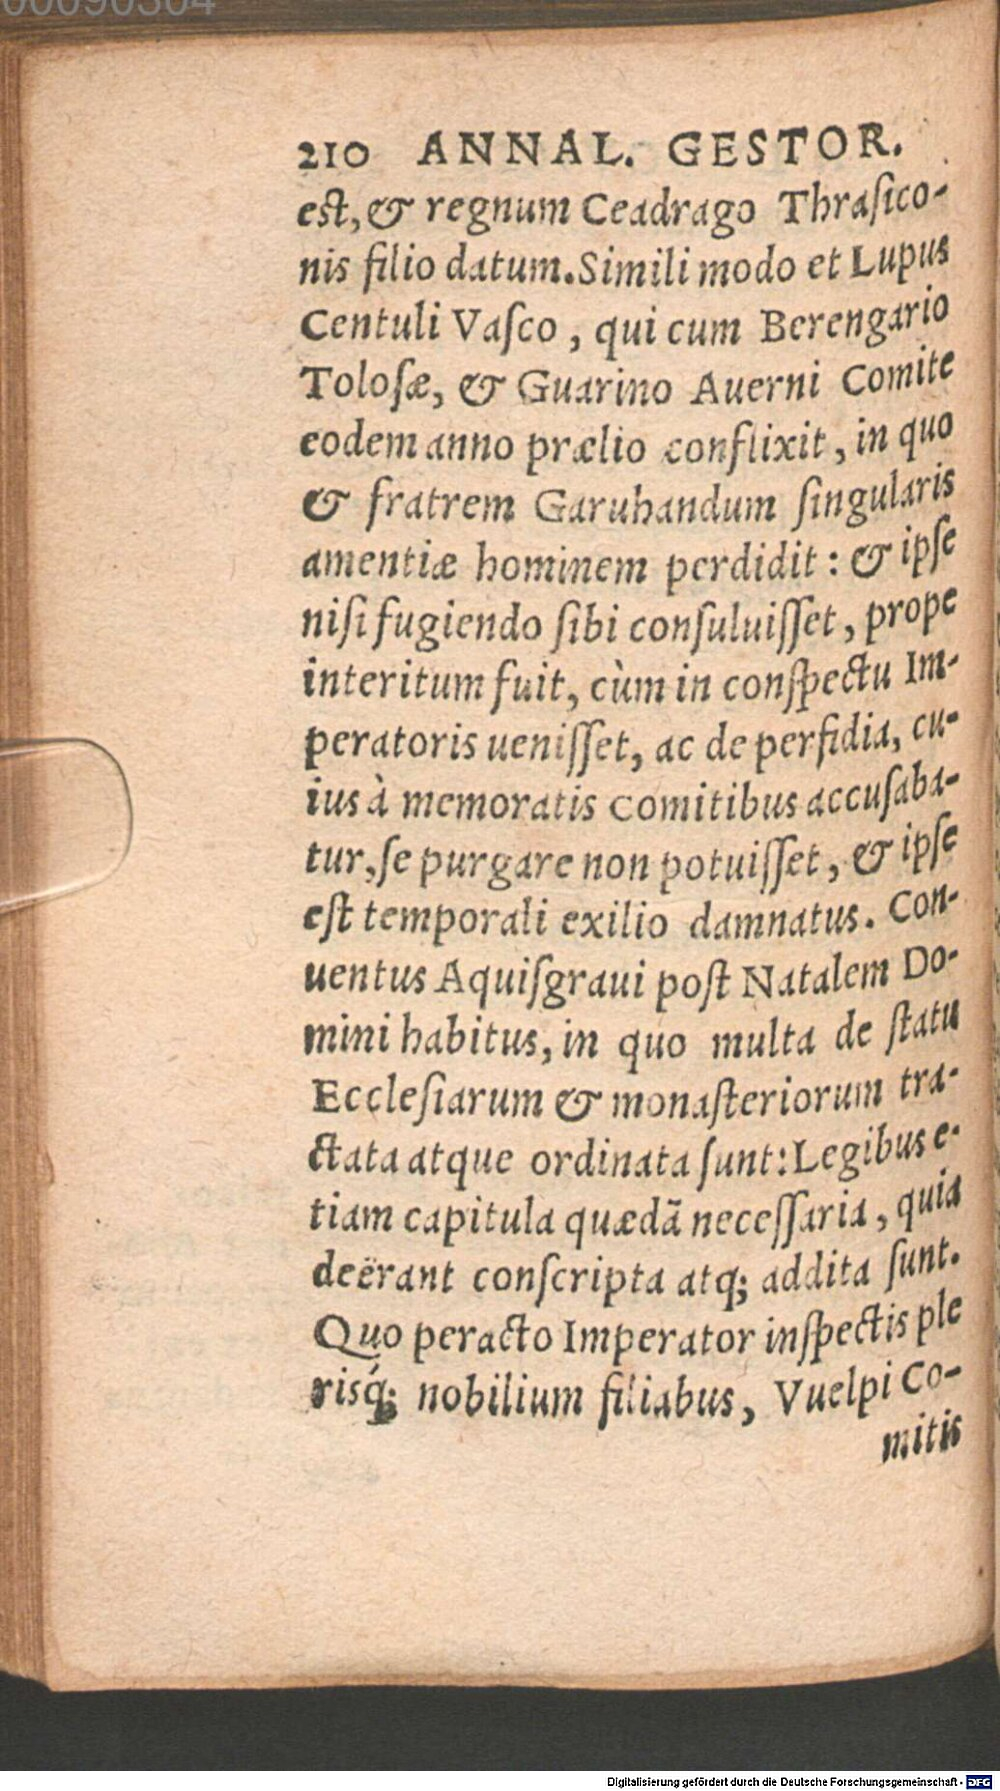 00090304
210 ANNAL. GESTOR.
est, & regnum Ceadrago Thraſico-
nis filio datum. Simili modo et Lupus
Centuli Vaſco, qui cum Berengario
Toloſæ, & Guarino Auerni Comite
eodem anno prælio conflixit, in quo
& fratrem Garuhandum ſingularis
amentiæ hominem perdidit: & ipſe
niſi fugiendo ſibi conſuluiſſet, prope
interitum fuit, cùm in conſpectu Im-
peratoris ueniſſet, ac de perfidia, cu-
ius à memoratis Comitibus accuſaba-
tur, ſe purgare non potuiſſet, & ipſe
eſt temporali exilio damnatus. Con-
uentus Aquiſgraui poſt Natalem Do-
mini habitus, in quo multa de ſtatu
Eccleſiarum & monaſteriorum tra-
ctata atque ordinata ſunt: Legibus e-
tiam capitula quædã neceſſaria, quia
deërant conſcripta atq; addita ſunt.
Quo peracto Imperator inſpectis ple
risq́; nobilium filiabus, Vuelpi Co-
mitis
Digitalisierung gefördert durch die Deutsche Forschungsgemeinschaft - DFG